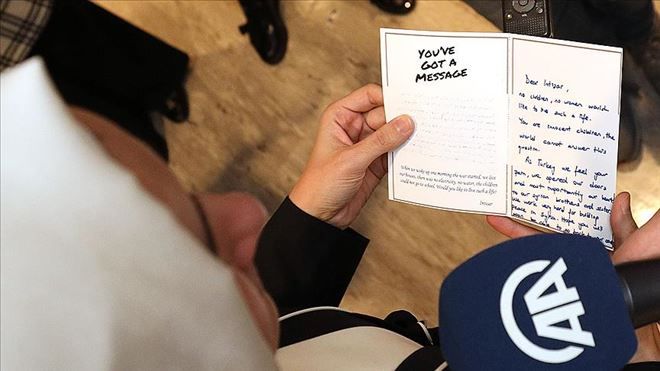 YOU'VE
GOT A
MESSAGE
When we woke up one morning the war started, we lost
our houses, there was no electricity, no water, the children
could not go to school. Would you like to live such a life?
Intizar
Dear Intizar,
no children, no women would
like to live such a life.
You are innocent children, the
world cannot answer this
question.
As Turkey we feel your
pain, we opened our doors
and most importantly our hearts
to our syrian brothers and sisters
we work very hard for building
peace in Syria. Hope you will
AA